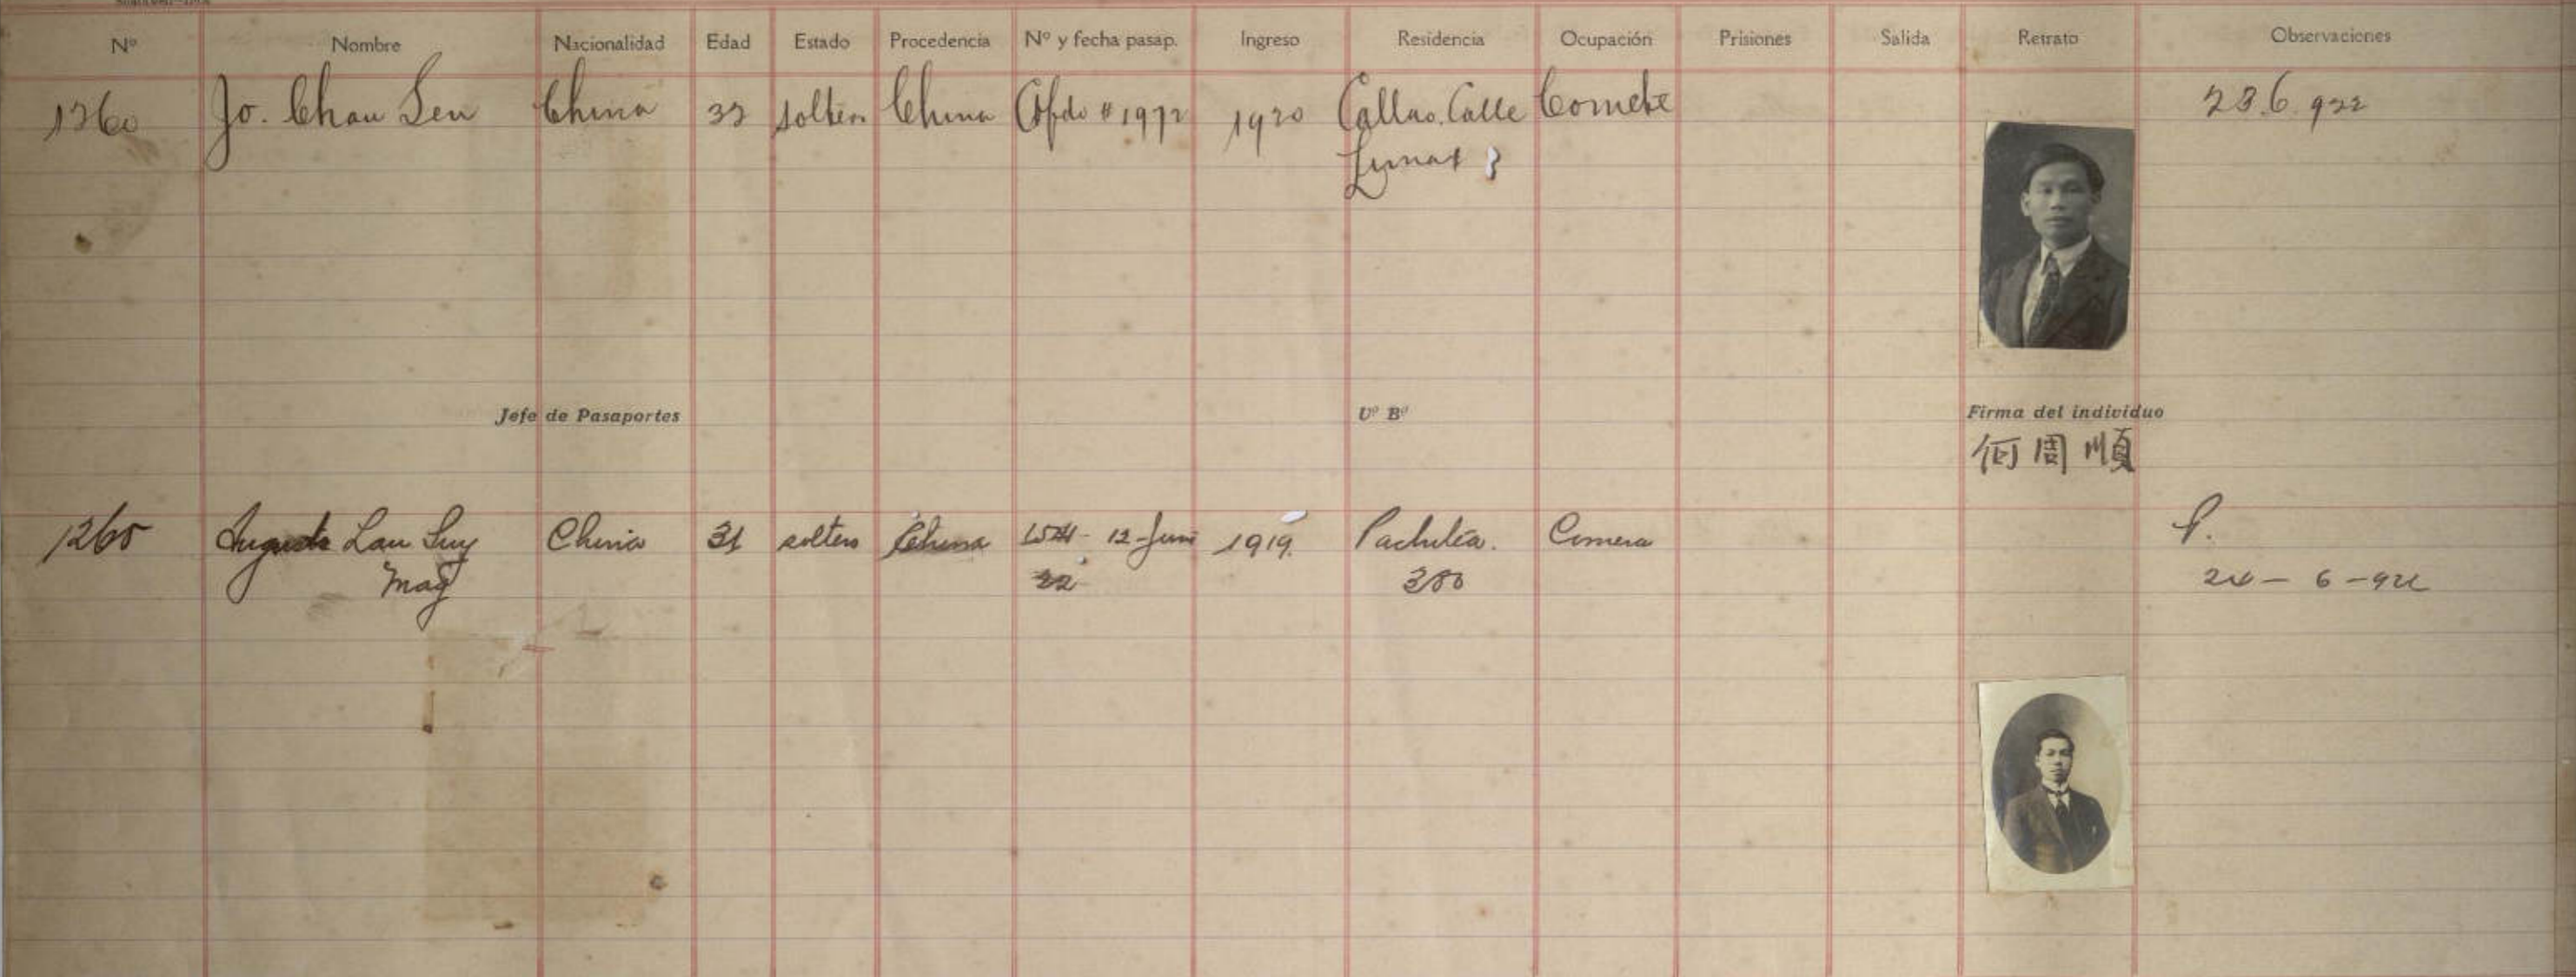 Nº Nombre Nacionalidad Edad Estado Procedencia Nº y fecha pasap. Ingreso Residencia Ocupación Prisiones Salida Retrato Observaciones
1260 Jo. Chau Sen China 32 soltero China #1972 1920 Callao. Calle 23.6.922
Jefe de Pasaportes Vº Bº Firma del individuo
何周順
1265 Augusto Lau Suy China 31 soltero China 12-Juni 1919. Pachitea. P.
May 22 380 24-6-922